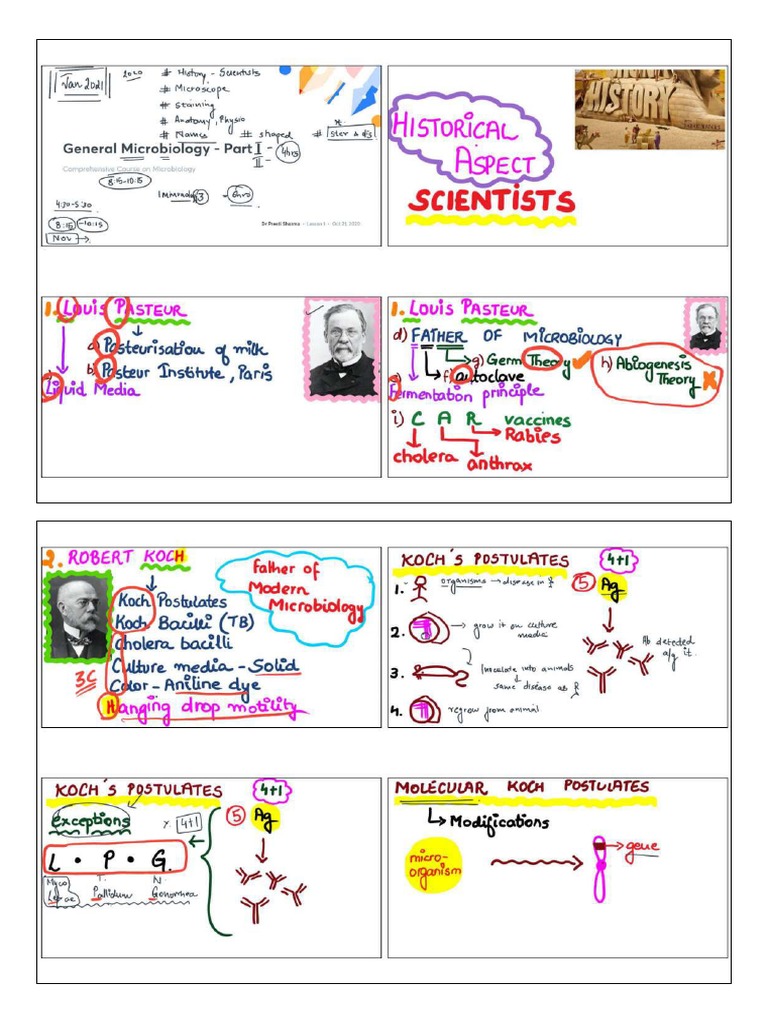 Jan 2021
2020
# History - Scientists
# Microscope
# Staining
# Anatomy, Physio
# Names # shaped # Ster & dis
General Microbiology - Part I -
II - 4hrs
Comprehensive Course on Microbiology
8:15-10:15
4:30-5:30
8:15 -10:15
Nov →
Dr Preeti Sharma • Lesson 1 • Oct 21, 2020
HISTORY
HISTORICAL
ASPECT
SCIENTISTS
1. LOUIS PASTEUR
a) Pasteurisation of milk
b) Pasteur Institute, Paris
Liquid Media
1. LOUIS PASTEUR
d) FATHER OF MICROBIOLOGY
g) Germ Theory ✓
h) Abiogenesis
Theory ✗
f) autoclave
e) Fermentation principle
i) C A R vaccines
Rabies
cholera
anthrax
2. ROBERT KOCH
Father of
Modern
Microbiology
Koch Postulates
Koch Bacilli (TB)
cholera bacilli
3C
Culture media - Solid
Color - Aniline dye
Hanging drop motility
KOCH'S POSTULATES 4+1
1. organisms → disease in
5 Ag
2. → grow it on culture
media
Ab detected
a/g it.
3. Inoculate into animals
↓
same disease as
4. regrow from animal
KOCH'S POSTULATES 4+1
exceptions 4+1
5 Ag
L • P • G.
Myco T. N.
Leprae Pallidum Gonorrhea
MOLECULAR KOCH POSTULATES
↳ Modifications
micro-
organism
→ gene